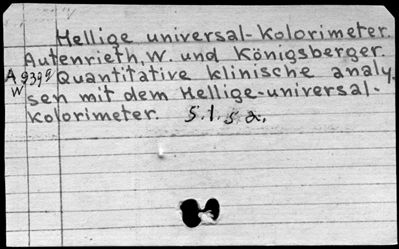 Hellige universal-Kolorimeter.
Autenrieth, W. und Königsberger.
A 939q Quantitative klinische analy-
W sen mit dem Hellige-universal-
kolorimeter. s.l. s a.